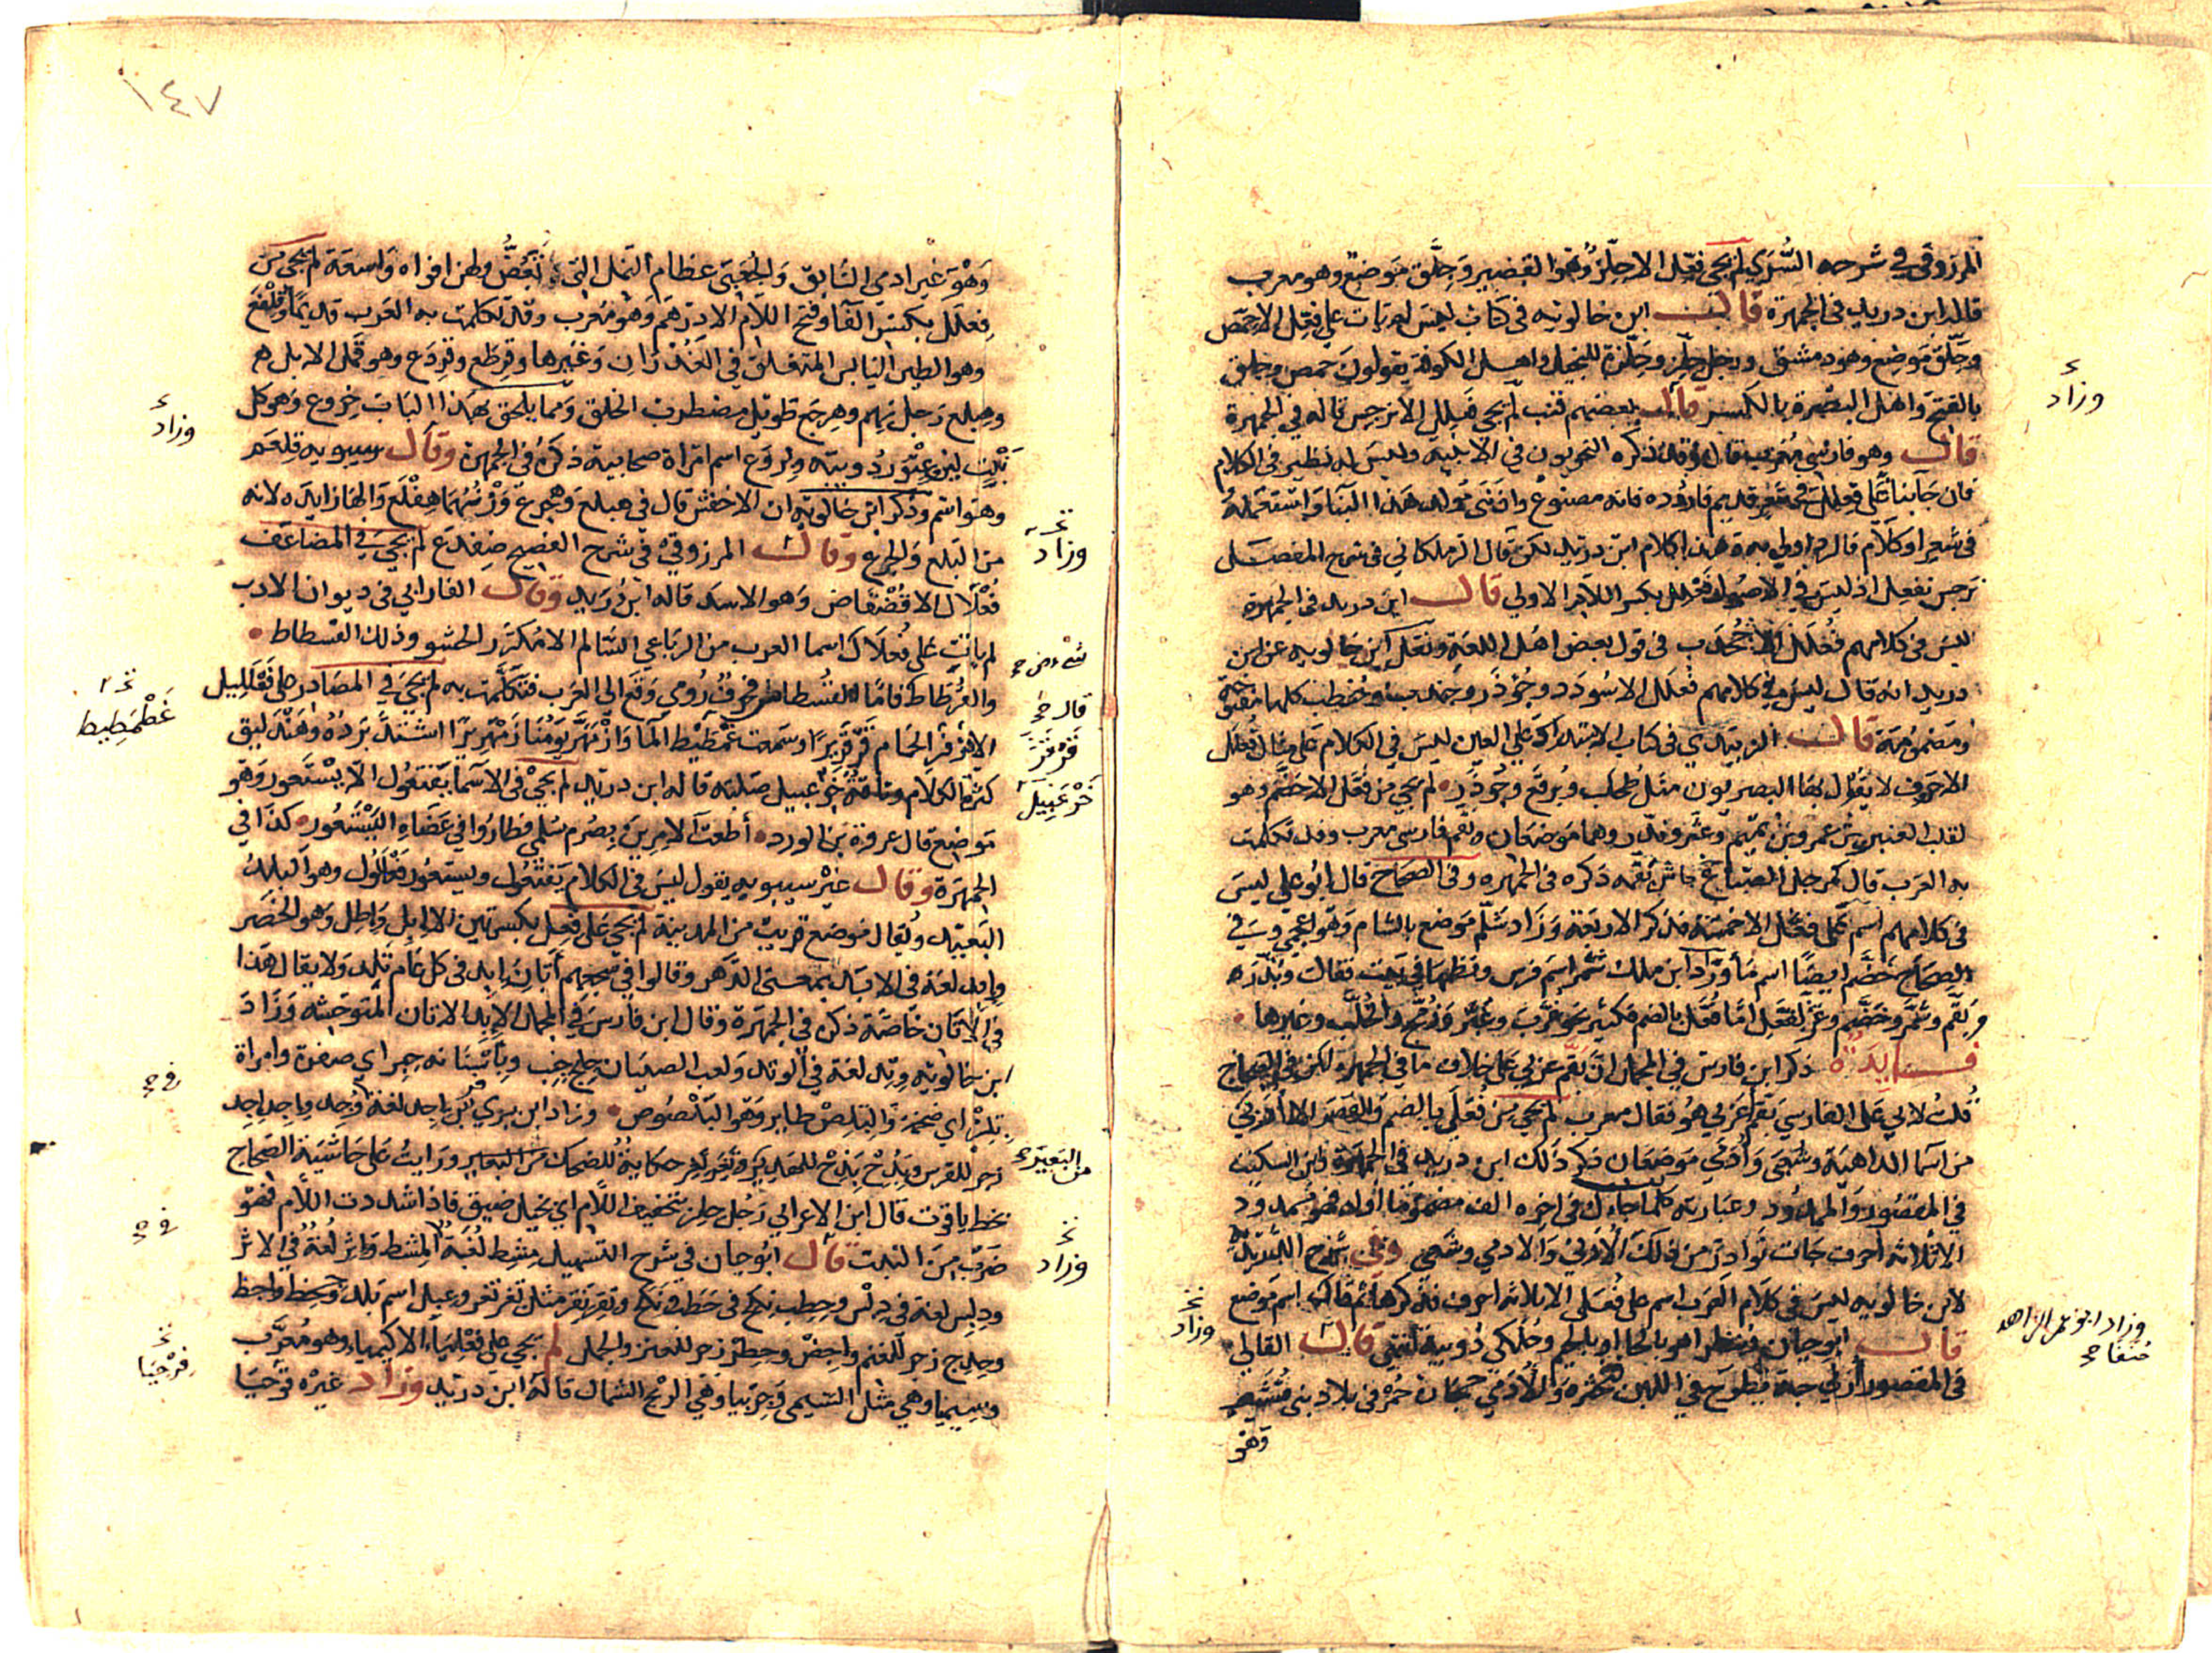 المرزوقي في شرحه السُّرَي لم يجئ فِعّل الا حِلّز وهو القصير وَجِلَّق موضع وهو معرب
قاله ابن دريد في الجمهرة قال ابن خالويه في كتاب ليس لم يات على فِعِّل الا حِمّص
وجلّق موضع وهو دمشق ورجل حِلّز وحِلّزة للبخيل واهل الكوفة يقولون حمص وجلق
بالفتح واهل البصرة بالكسر قال بعضهم قنب لم يجئ فَعْلِل الا نرجس قاله في الجمهرة
قال وهو فارسي معرب قال وقد ذكره النحويون في الابنية وليس له نظير في الكلام
فان جا بنا على فعلل في شعر قديم فاردده فانه مصنوع وان بنى مولد هذا البنا واستعمله
في شعر او كلام فالرد اولى به هذا كلام ابن دريد لكن قال الزملكاني في شرح المفصل
نرجس نفعل اذ ليس في الاصول فعلل بكسر اللام الاولى قال ابن دريد في الجمهرة
ليس في كلامهم فُعْلَل الا جُخْدَب في قول بعض اهل اللغة ونقل ابن خالويه عن ابن
دريد انه قال ليس في كلامهم فعلل الا سُودَد وجُوذَر وجندب وحُنطب كلها مفتوحة
ومضمومة قال الزبيدي في كتاب الاستدراك على العين ليس في الكلام على مثال فُعْلَل
الا حروف لا يقول بها البصريون مثل طُحلَب وبُرقَع وجُوذَر لم يجئ من فَعَّل الا خَضَّم وهو
لقب العنبر بن عمرو بن تميم وعَثَّر وبَذَّر وهما موضعان وبَقَّم فارسي معرب وقد تكلمت
به العرب قال كمرجل الصباغ جاش بقّمه ذكره في الجمهرة وفي الصحاح قال ابو علي ليس
في كلامهم اسم على فعّل الا خمسة فذكر الاربعة وزاد شَلَّم موضع بالشام وهو اعجمي وفي
الصحاح خضّم ايضًا اسم ما وزاد ابن ملك شمّر اسم فرس ونظمها في بيت فقال وبذّره
وبقّم وشمّر وخضّم وعثّر لفعّل اما فُعَّل بالضم فكثير نحو غُرّب وعُثّر وزُمّج والحُلَّب وغيرها
فايده ذكر ابن فارس في المجمل ان بقّم عربي على خلاف ما في الجمهرة لكن في الصحاح
قلت لابي علي الفارسي بقّم اعربي هو فقال معرب لم يجئ من فُعَلَى بالضم والقصر الا اُرَبَى
من اسما الداهية وشُعَبَى وأُدَمَى موضعان ذكر ذلك ابن دريد في الجمهرة وابن السكيت
في المقصور والممدود وعبارته كلما جاءك في اخره الف مضموما اوله فهو ممدود
الا ثلاثة احرف جات نوادر من ذلك الاربى والادمى وشعبى وفي شرح الدريدية
لابن خالويه ليس في كلام العرب اسم على فُعَلَى الا ثلاثة احرف فذكرها ثم قال اسم موضع
قال ابو حيان وينظر اهو بالحا او بالجيم وحُلَكَى دُويبة انتهى قال القالي
في المقصور ارنى حبة تطرح في اللبن فتثخره والأُدَمى حجارة حُمْر في بلاد بني قشير
وهو
وزاد
وزاد ابو عمر الزاهد
حنفا
وزاد
١٤٧
وَهُو غير ادمى السابق وَالجعبى عظام النمل التي تعضّ ولهن افواه واسعة لم يجئ من
فِعلَل بكسر الفا وفتح اللام الا دِرهَم وهو معرب وقد تكلمت به العرب قديمًا وقِلْفَع
وهو الطين اليابس المتفلق في الغُدْرَان وغيرها وقِرطَع وقِردَع وهو قمل الابل
وهِبلع رجل نهم وهِجرَع طويل مضطرب الخلق ومما يلحق بهذا الباب خِروَع وهو كل
نَبْتٍ لين وعِتوَر دُويبة وبِروَع اسم امراة صحابية ذكرهُ في الجمهرة وقال سيبويه قِلعَم
وهو اسم وذكر ابن خالويه ان الاخفش قال في هبلع وهجرع وزنهما هِفْعَل والها زايدة لانه
من البلع والجرع وقال المرزوقي في شرح الفصيح ضِفدَع لم يجئ في المضاعف
فُعْلَال الا قُضْقَاض وهو الاسد قاله ابن دريد وقال الفارابي في ديوان الادب
لم يات على فُعلال اسما العرب من الرباعي السالم الا مُكرّر الحشو وذلك الفسطاط
والقُرطاط فامّا الفُسطاط فحرف رُومي وقع الى العرب فتكلّمت به لم يجئ في المصادر على فَعْلَلِيل
الا قَرقَر الحمام قَرْقَرِيرًا وسمعت غَطمَطِيط الما وازمَهَرّ يومُنا زَمْهَرِيرًا اشتد بَردُه وهَندَلِيق
كثير الكلام وناقة خَرعَبِيل صلبة قاله ابن دريد لم يجئ في الاسما يَفتَعُول الا يَسْتَعور وهو
موضع قال عروة بن الورد أطعتُ الامرين بصُرم سلمى فطاروا في عضاه اليَسْتَعُور كذا في
الجمهرة وقال غير سيبويه يقول ليس في الكلام يَفتَعُول ويستعور فَعْلَلُول وهو البلد
البعيد ويقال موضع قريب من المدينة لم يجئ على فِعِل بكسرتين الا ابل واطِل وهو الخصر
وابد لغة في الابد بمعنى الدهر وقالوا في سجعهم أتان إبد في كل عام تلد ولا يقال هذا
في الاتان خاصّة ذكره في الجمهرة وقال ابن فارس في المجمل الإبِد الاتان المتوحشة وزاد
ابن خالويه وِتِد لغة في الوتد ولعب الصبيان جلِخ جِلِب وبأسنانه حِبِر اي صفرة وامراة
بِلِز اي ضخمة والبِلِص طاير وهو البَلَصُوص وزاد ابن بري
زجر للفرس
بخط ياقوت قال ابن الاعرابي رَجُل حِلِز بتخفيف اللام اي بخيل ضيق فاذا شددت اللام فهو
ضَرْب من النبت قال ابو حيان في شرح التسهيل مِشِط لُغَةٌ في المشط وإثِر لُغَةٌ في الاثر
ودِبِس لغة في دِبْس وخِطِب نِكِح في خَطَب ونَكَح
زجر للغنم زجر للعنز والجمل لم يجئ على فِعْلِيَاء الا كيمياء وهو مُعرَّب
وسيميا وهي مثل السيمى وجِربِيا وهي الريح الشمال قاله ابن دريد وزاد غيره قرحيا
وزاد
وزاد
قال
قَرْقَرَ
غَطْمَطِيط
خَرْعَبِيل
من البَعير
وزاد